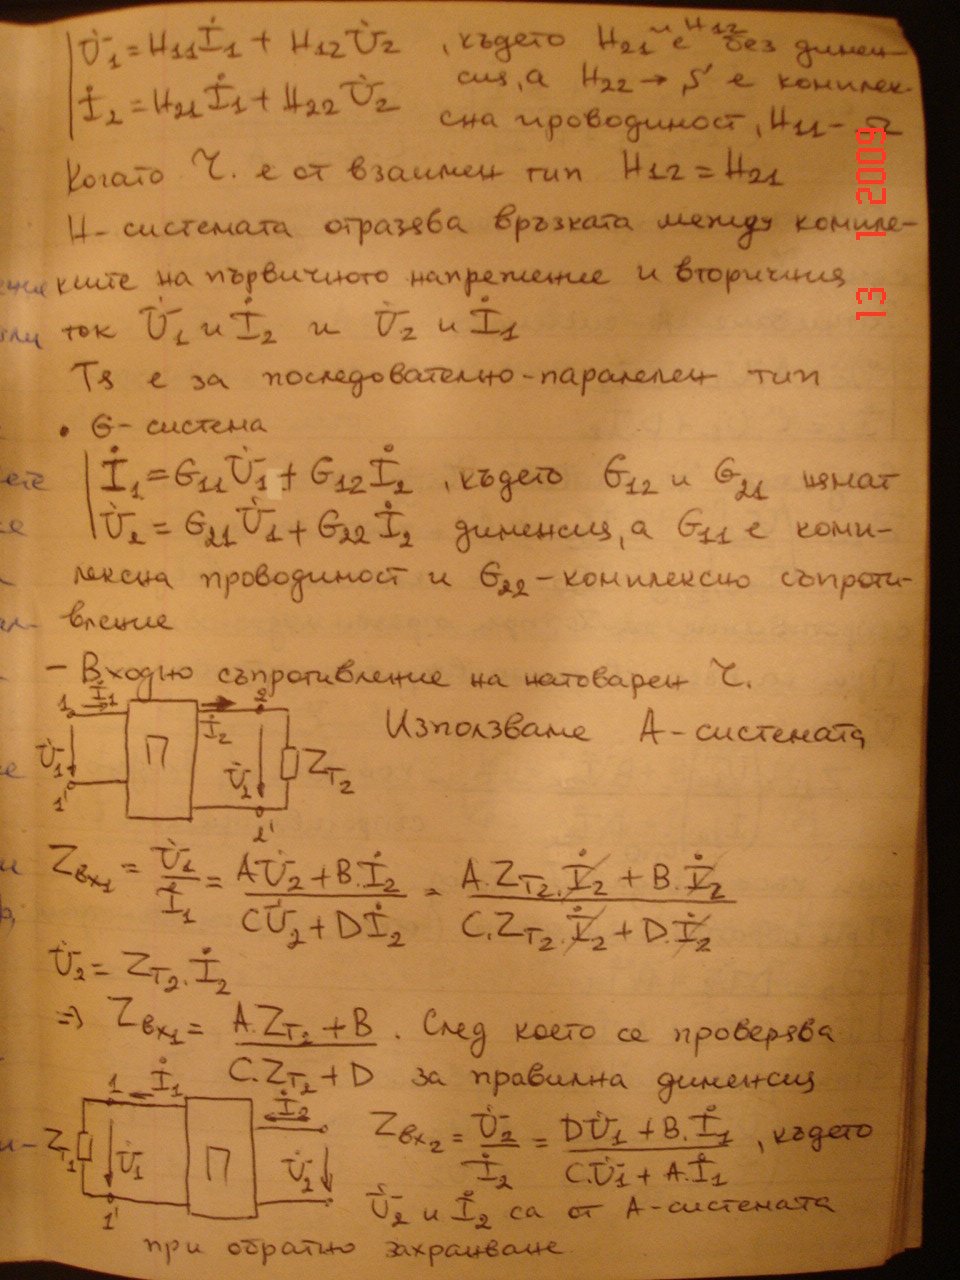 U̇₁ = H₁₁İ₁ + H₁₂U̇₂ , където H₂₁ и H₁₂ е без димен-
İ₂ = H₂₁İ₁ + H₂₂U̇₂ сия, а H₂₂ → S е комплек-
сна проводиност, H₁₁ – Ω
Когато Ч. е от взаимен тип H₁₂ = H₂₁
H- системата отразява връзката между компле-
ксите на първичното напрежение и вторичния
ток U̇₁ и İ₂ и U̇₂ и İ₁
Тя е за последователно-паралелен тип
• G- система
İ₁ = G₁₁U̇₁ + G₁₂İ₂ , където G₁₂ и G₂₁ нямат
U̇₂ = G₂₁U̇₁ + G₂₂İ₂ дименсия, а G₁₁ е комп-
лексна проводиност и G₂₂ – комплексно съпроти-
вление
– Входно съпротивление на натоварен Ч.
1 İ₁ П İ₂ 2 Използваме А-системата
U̇₁ U̇₂ Z_T₂
1' 2'
Z_вх₁ = U̇₁/İ₁ = (AU̇₂ + B.İ₂)/(CU̇₂ + Dİ₂) = (A.Z_T₂.İ₂ + B.İ₂)/(C.Z_T₂.İ₂ + D.İ₂)
U̇₂ = Z_T₂.İ₂
=> Z_вх₁ = (A.Z_T₂ + B)/(C.Z_T₂ + D) . След което се проверява
за правилна дименсия
1 İ₁ İ₂
Z_T₁ U̇₁ П U̇₂ Z_вх₂ = U̇₂/İ₂ = (DU̇₁ + B.İ₁)/(C.U̇₁ + A.İ₁) , където
1' U̇₂ и İ₂ са от А-системата
при обратно захранване
13 1 2009